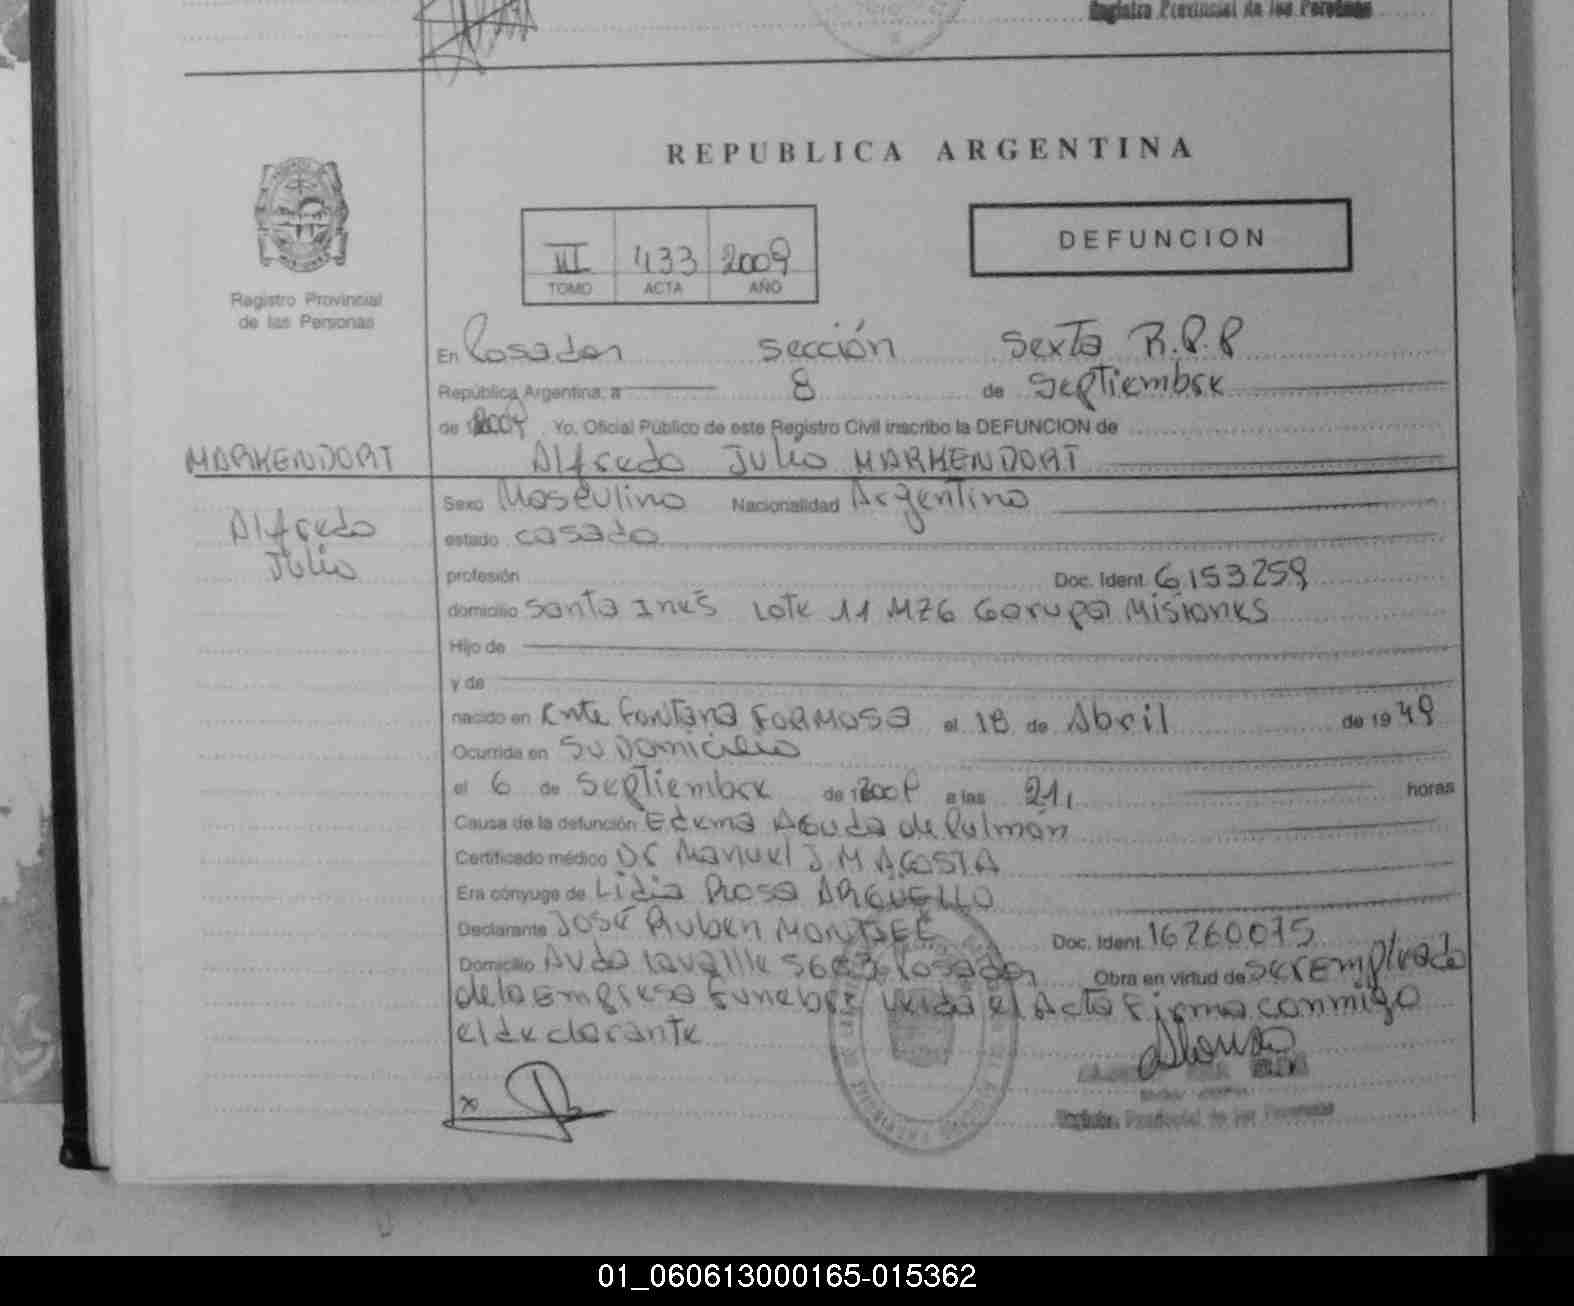 Registro Provincial de las Personas
REPUBLICA ARGENTINA
III 433 2009
TOMO ACTA AÑO
DEFUNCION
Registro Provincial
de las Personas
En Posadas sección Sexta R.P.P
República Argentina, a 8 de Septiembre
de 2009 Yo, Oficial Público de este Registro Civil inscribo la DEFUNCION de
MARKENDORT
Alfredo Julio MARKENDORT
Alfredo
Julio
Sexo Masculino Nacionalidad Argentino
estado casado
profesión Doc. Ident. 6153259
domicilio Santa Inés Lote 11 MZ6 Garupa Misiones
Hijo de
y de
nacido en Knte Fontana FORMOSA el 18 de Abril de 1949
Ocurrida en Su Domicilio
el 6 de Septiembre de 2009 a las 21, horas
Causa de la defunción Edema Aguda de Pulmón
Certificado médico Dr Manuel J. M ACOSTA
Era cónyuge de Lidia Rosa ARGUELLO
Declarante José Ruben MONTIEL Doc. Ident. 16260075
Domicilio Avda Lavalle Posadas Obra en virtud de ser Empleado
de la Empresa Funebre Leida el Acta Firma conmigo
el declarante
Registro Provincial de las Personas
01_060613000165-015362